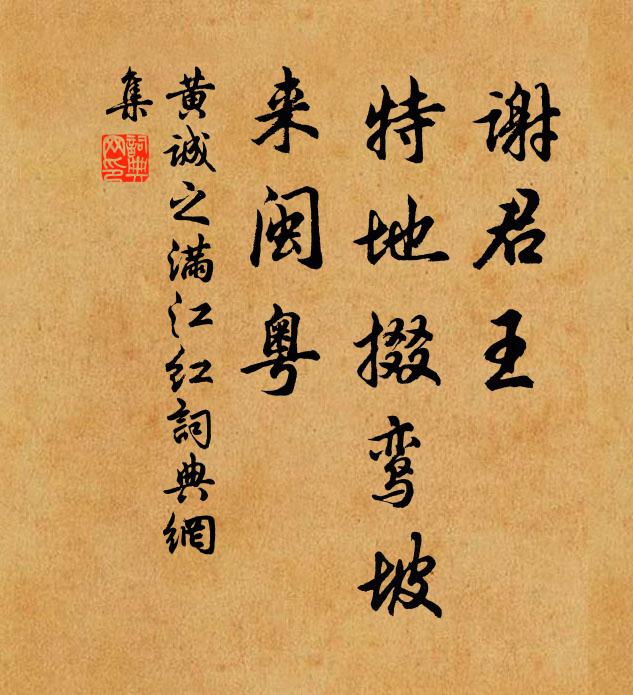 谢君王
特地掇鸾坡
来闽粤
黄诚之满江红詞典網
集
詞典
网印